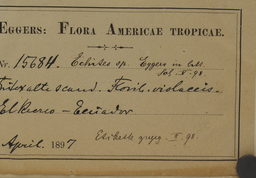 EGGERS: FLORA AMERICAE TROPICAE.
Nr. 15684. Echites sp. Eggers in litt.
V. 98.
scand. Flor. violaceis.
El Recreo – Ecuador
April. 1897 Etikette V. 98.